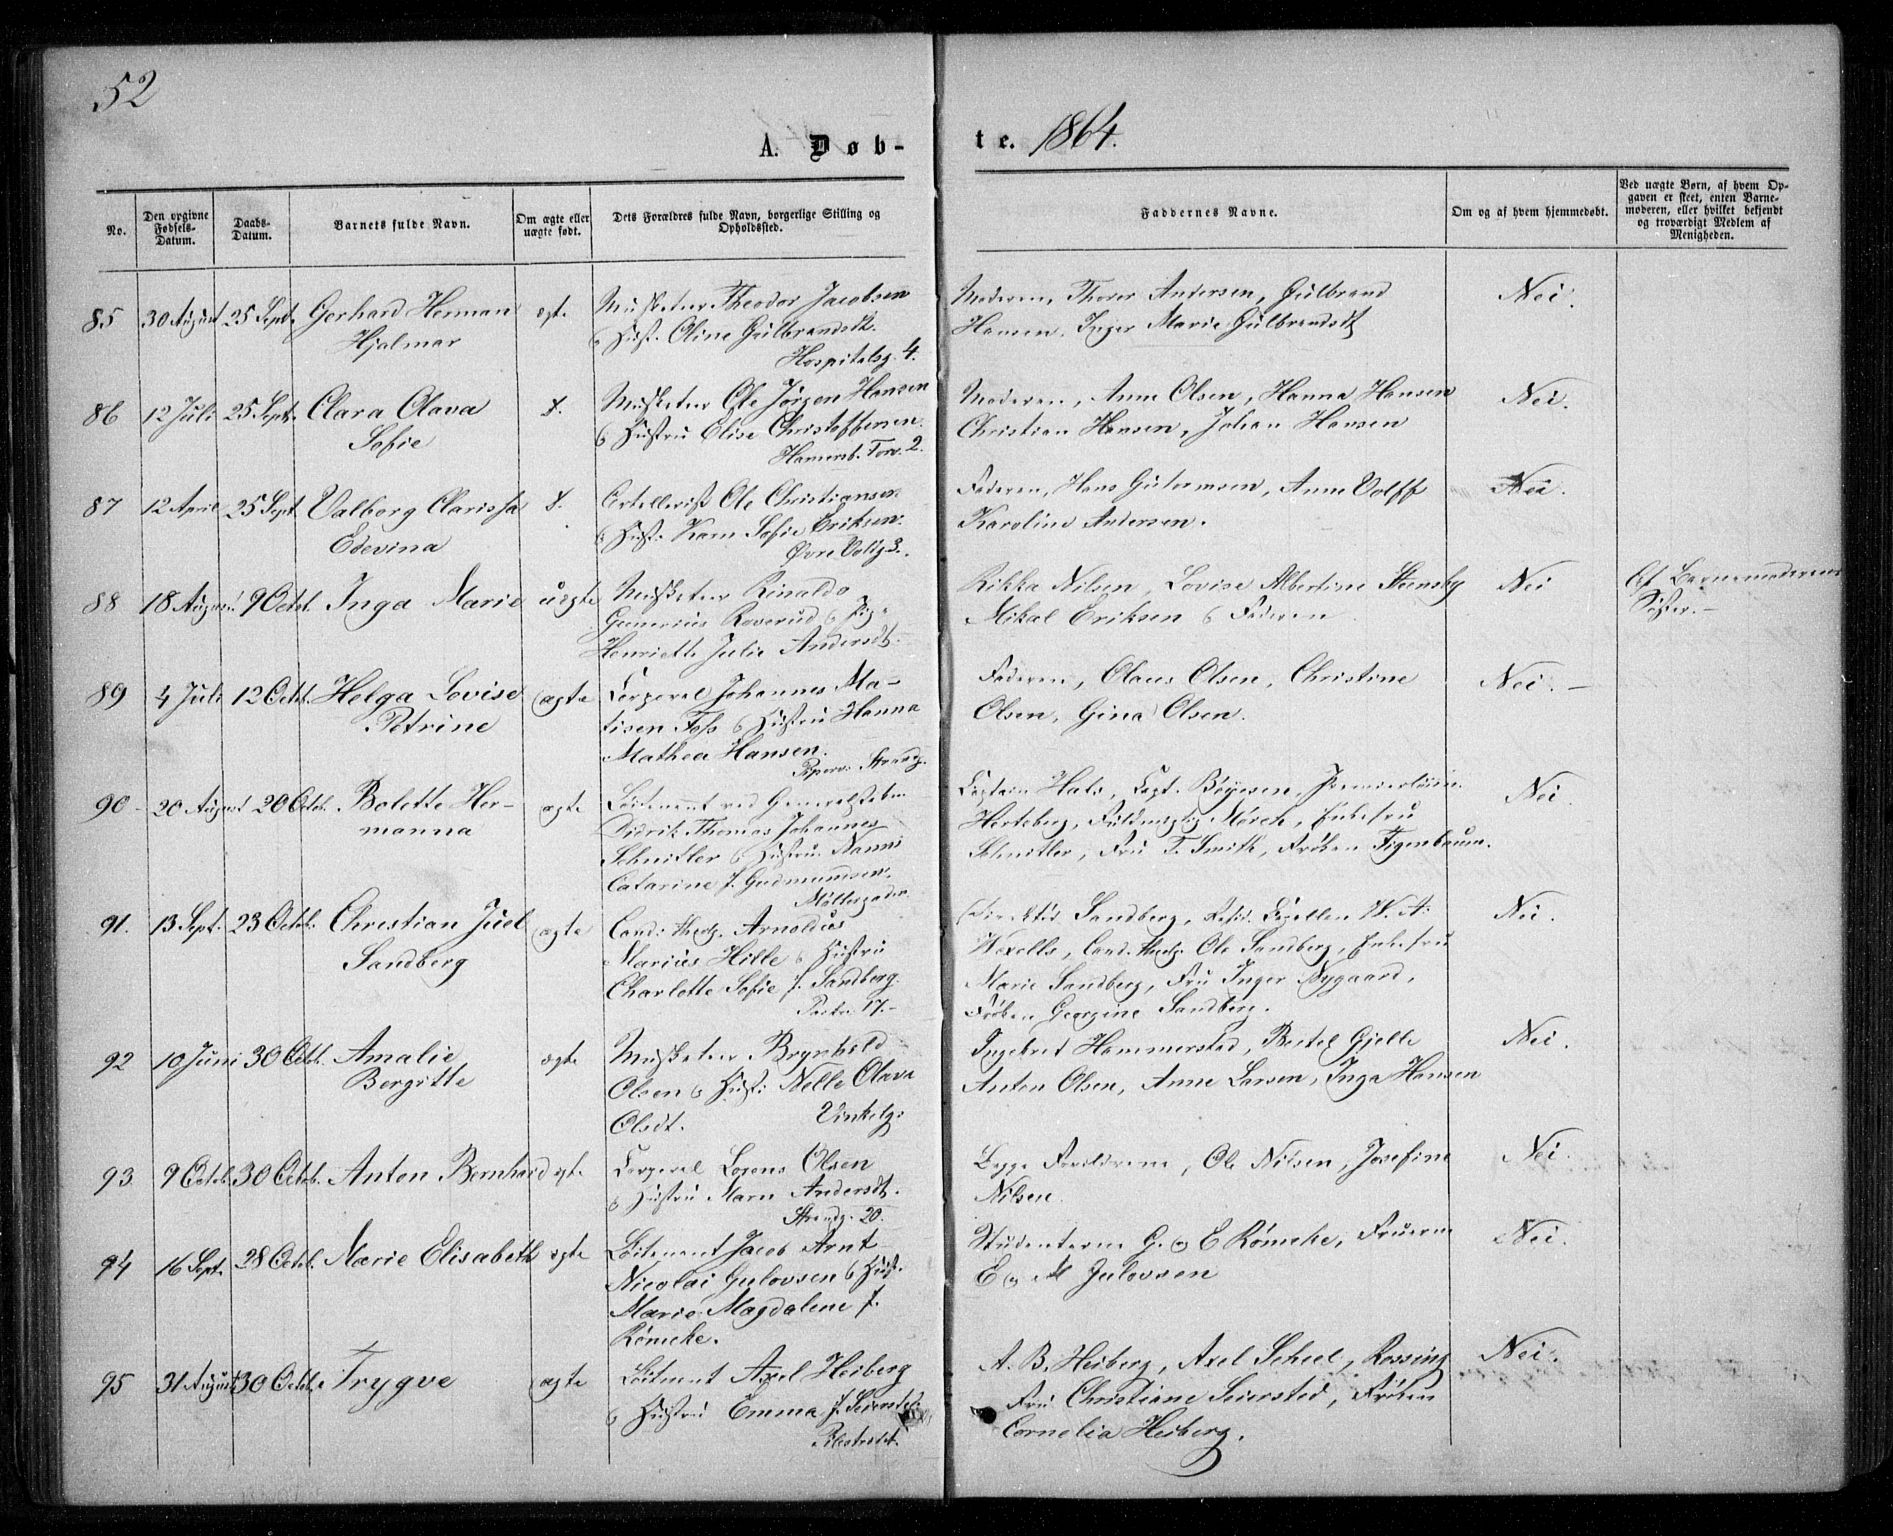 52
A. Døb-
te. 1864.
No.
Den opgivne Fødsels-Datum.
Daabs-Datum.
Barnets fulde Navn.
Om ægte eller uægte født.
Dets Forældres fulde Navn, borgerlige Stilling og Opholdssted.
Faddernes Navne.
Om og af hvem hjemmedøbt.
Ved uægte Børn, af hvem Op-
gaven er skeet, enten Barne-
moderen, eller hvilket bekjendt
og troværdigt Medlem af
Menigheden.
85 30 August 25 Sept. Gerhard Herman ægte Musketeer Theodor Jacobsen
Hjalmar & Hust. Oline Gulbrandsdt.
Hospitalsg. 4.
Moderen, Thorer Andersen, Gulbrand Nei.
Hansen, Inger Marie Gulbrandsdt
86 12 Juli 25 Sept. Clara Olava Musketeer Ole Jørgen Hansen
Sofie & Hustru Elise Christoffersen.
Hamersb. Torv. 2.
Moderen, Anne Olsen, Hanna Hansen Nei.
Christian Hansen, Johan Hansen
87 12 April 25 Sept. Valborg Clarissa Artellerist Ole Christiansen
Edevina & Hust. Karn Sofie Eriksen.
Øvre Voldg. 3.
Faderen, Hans Gulormsen, Anne Volff Nei.
Karoline Andersen.
88 18 August 9 Octob. Inga Marie uægte Musketeer Rinaldo
Gunerius Roverud & Pige
Henriette Julie Andersdt.
Rikka Nilsen, Lovise Albertine Steensby Nei Af Barnemoderens
Mikal Eriksen & Faderen Søster.
89 4 Juli 12 Octob. Helga Lovise ægte Corporal Johannes Ma-
Petrine tisen Foss & Hustru Hanna
Mathea Hansen.
Piperv. Strandg.
Faderen, Olaus Olsen, Christine Nei.
Olsen, Gina Olsen.
90 20 August 20 Octob. Bolette Her- ægte Løitenant ved Generalstaben
manna Didrik Thomas Johannes
Schnitler & Hustru Nanni
Catarine f. Gudmundsen.
Møllergaden
Captain Hals, Capt. Bøyesen, Premierløitn. Nei
Hertzberg, Fuldmægtig Mørch, Enkefru
Schnitler, Fru T. Smith, Frøken Figenbaum.
91. 13 Sept. 23 Octob. Christian Juel ægte Cand. theolg. Arnoldus
Sandberg Marius Hille & Hustru
Charlotte Sofie f. Sandberg.
17.
Direktør Sandberg, Resid. Capellan W. A. Nei.
Wexells, Cand. theolg. Ole Sandberg, Enkefru
Marie Sandberg, Fru Inger Nygaard,
Frøken Georgine Sandberg.
92 10 Juni 30 Octob. Amalie ægte Musketeer Brynhold
Bergitte Olsen & Hust: Nelle Olava
Olsdt. Vinkelg.
Ingebret Hammerstad, Bertel Gjelle Nei.
Anton Olsen, Anne Larsen, Inga Hansen
93. 9 Octob. 30 Octob. Anton Bernhard ægte Corporal Lorens Olsen
& Hustru Marn Andersdt.
Strandg. 20.
Begge Forældrene, Ole Nilsen, Josefine Nei.
Nilsen.
94 16 Sept. 28 Octob. Marie Elisabeth ægte Løitenant Jacob Arnt
Nicolai Gulovsen & Hust.
Marie Magdalene f.
Rømcke.
Studenterne G. & E Rømcke, Fruerne Nei.
E & M Julovsen
95 31 August 30 Octob. Trygve ægte Løitnant Axel Heiberg
& Hustru Emma f. Seiersted.
Pilestredet.
A. B. Heiberg, Axel Scheel, Rossing Nei.
Fru Christiane Seiersted, Frøken
Cornelia Heiberg.